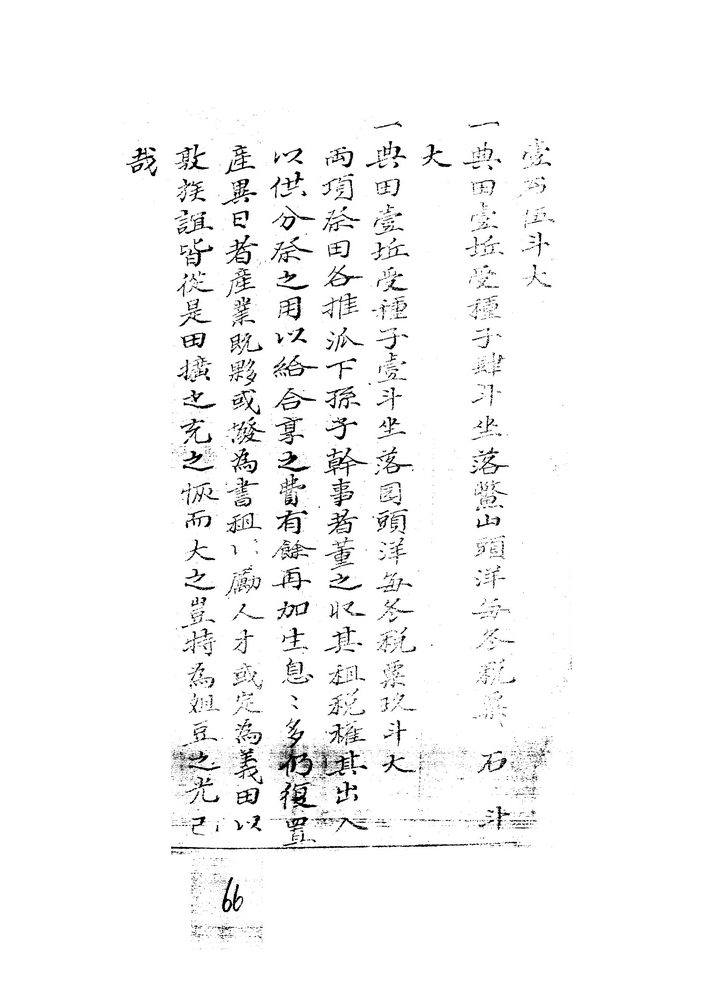 壹石伍斗大
一典田壹坵受種子肆斗坐落鱉山頭洋每冬稅粟 石 斗
大
一典田壹坵受種子壹斗坐落園頭洋每冬稅粟玖斗大
両項祭田各推派下孫子幹事者董之收其租稅權其出入
以供分祭之用以給合享之費有餘再加生息〻多仍復置
產異日者產業既夥或撥為書租以勵人才或定為義田以
敦族誼皆從是田擴之充之恢而大之豈特為俎豆之光已
哉
66